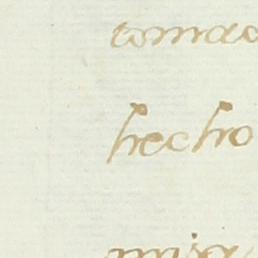 tomad
hecho